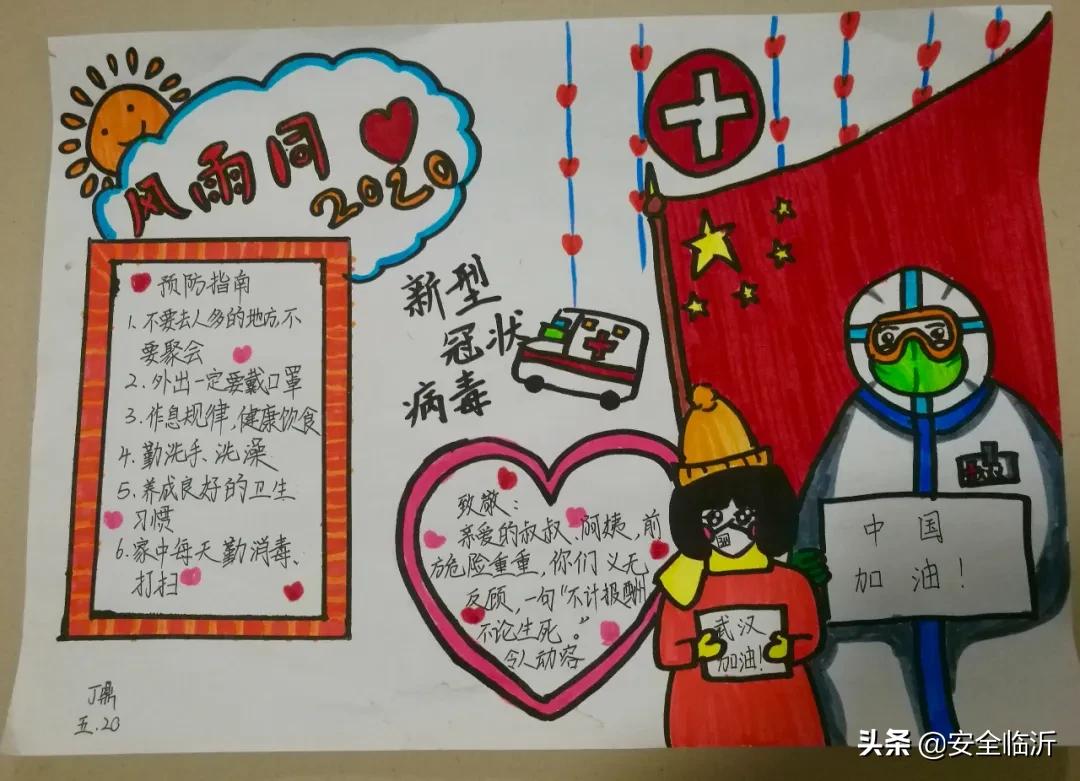 风雨同
2020
预防指南
1. 不要去人多的地方,不
要聚会
2. 外出一定要戴口罩
3. 作息规律,健康饮食
4. 勤洗手、洗澡
5. 养成良好的卫生
习惯
6. 家中每天勤消毒、
打扫
丁鼎
五.20
新型
冠状
病毒
致敬:
亲爱的叔叔、阿姨,前
方危险重重,你们义无
反顾,一句"不计报酬
不论生死。"
令人动容
武汉
加油!
中国
加油!
头条 @安全临沂